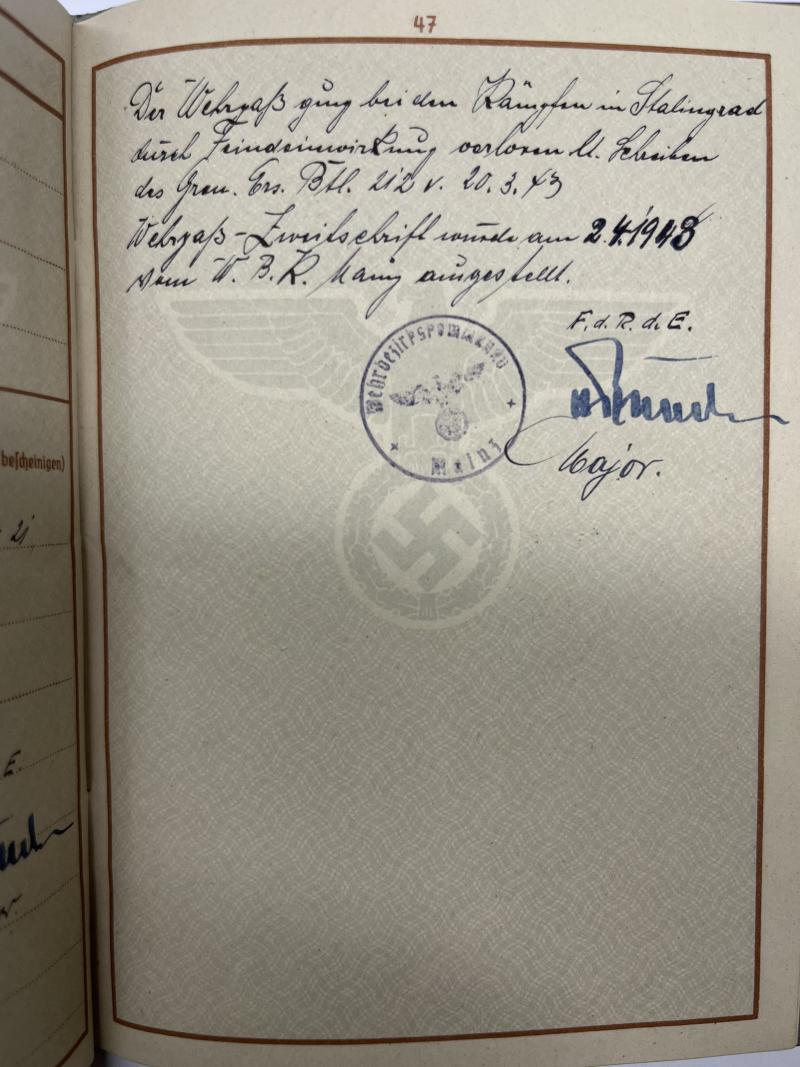 47
Der Wehrpaß ging bei den Kämpfen in Stalingrad
durch Feindeinwirkung verloren lt. Schreiben
des Gren. Ers. Btl. 212 v. 20.3.43
Wehrpaß-Zweitschrift wurde am 2.4.1943
vom W. B. K. Mainz ausgestellt.
F.d.R.d.E.
Wehrbezirkskommando
Mainz
Major.
bescheinigen)
21
E.